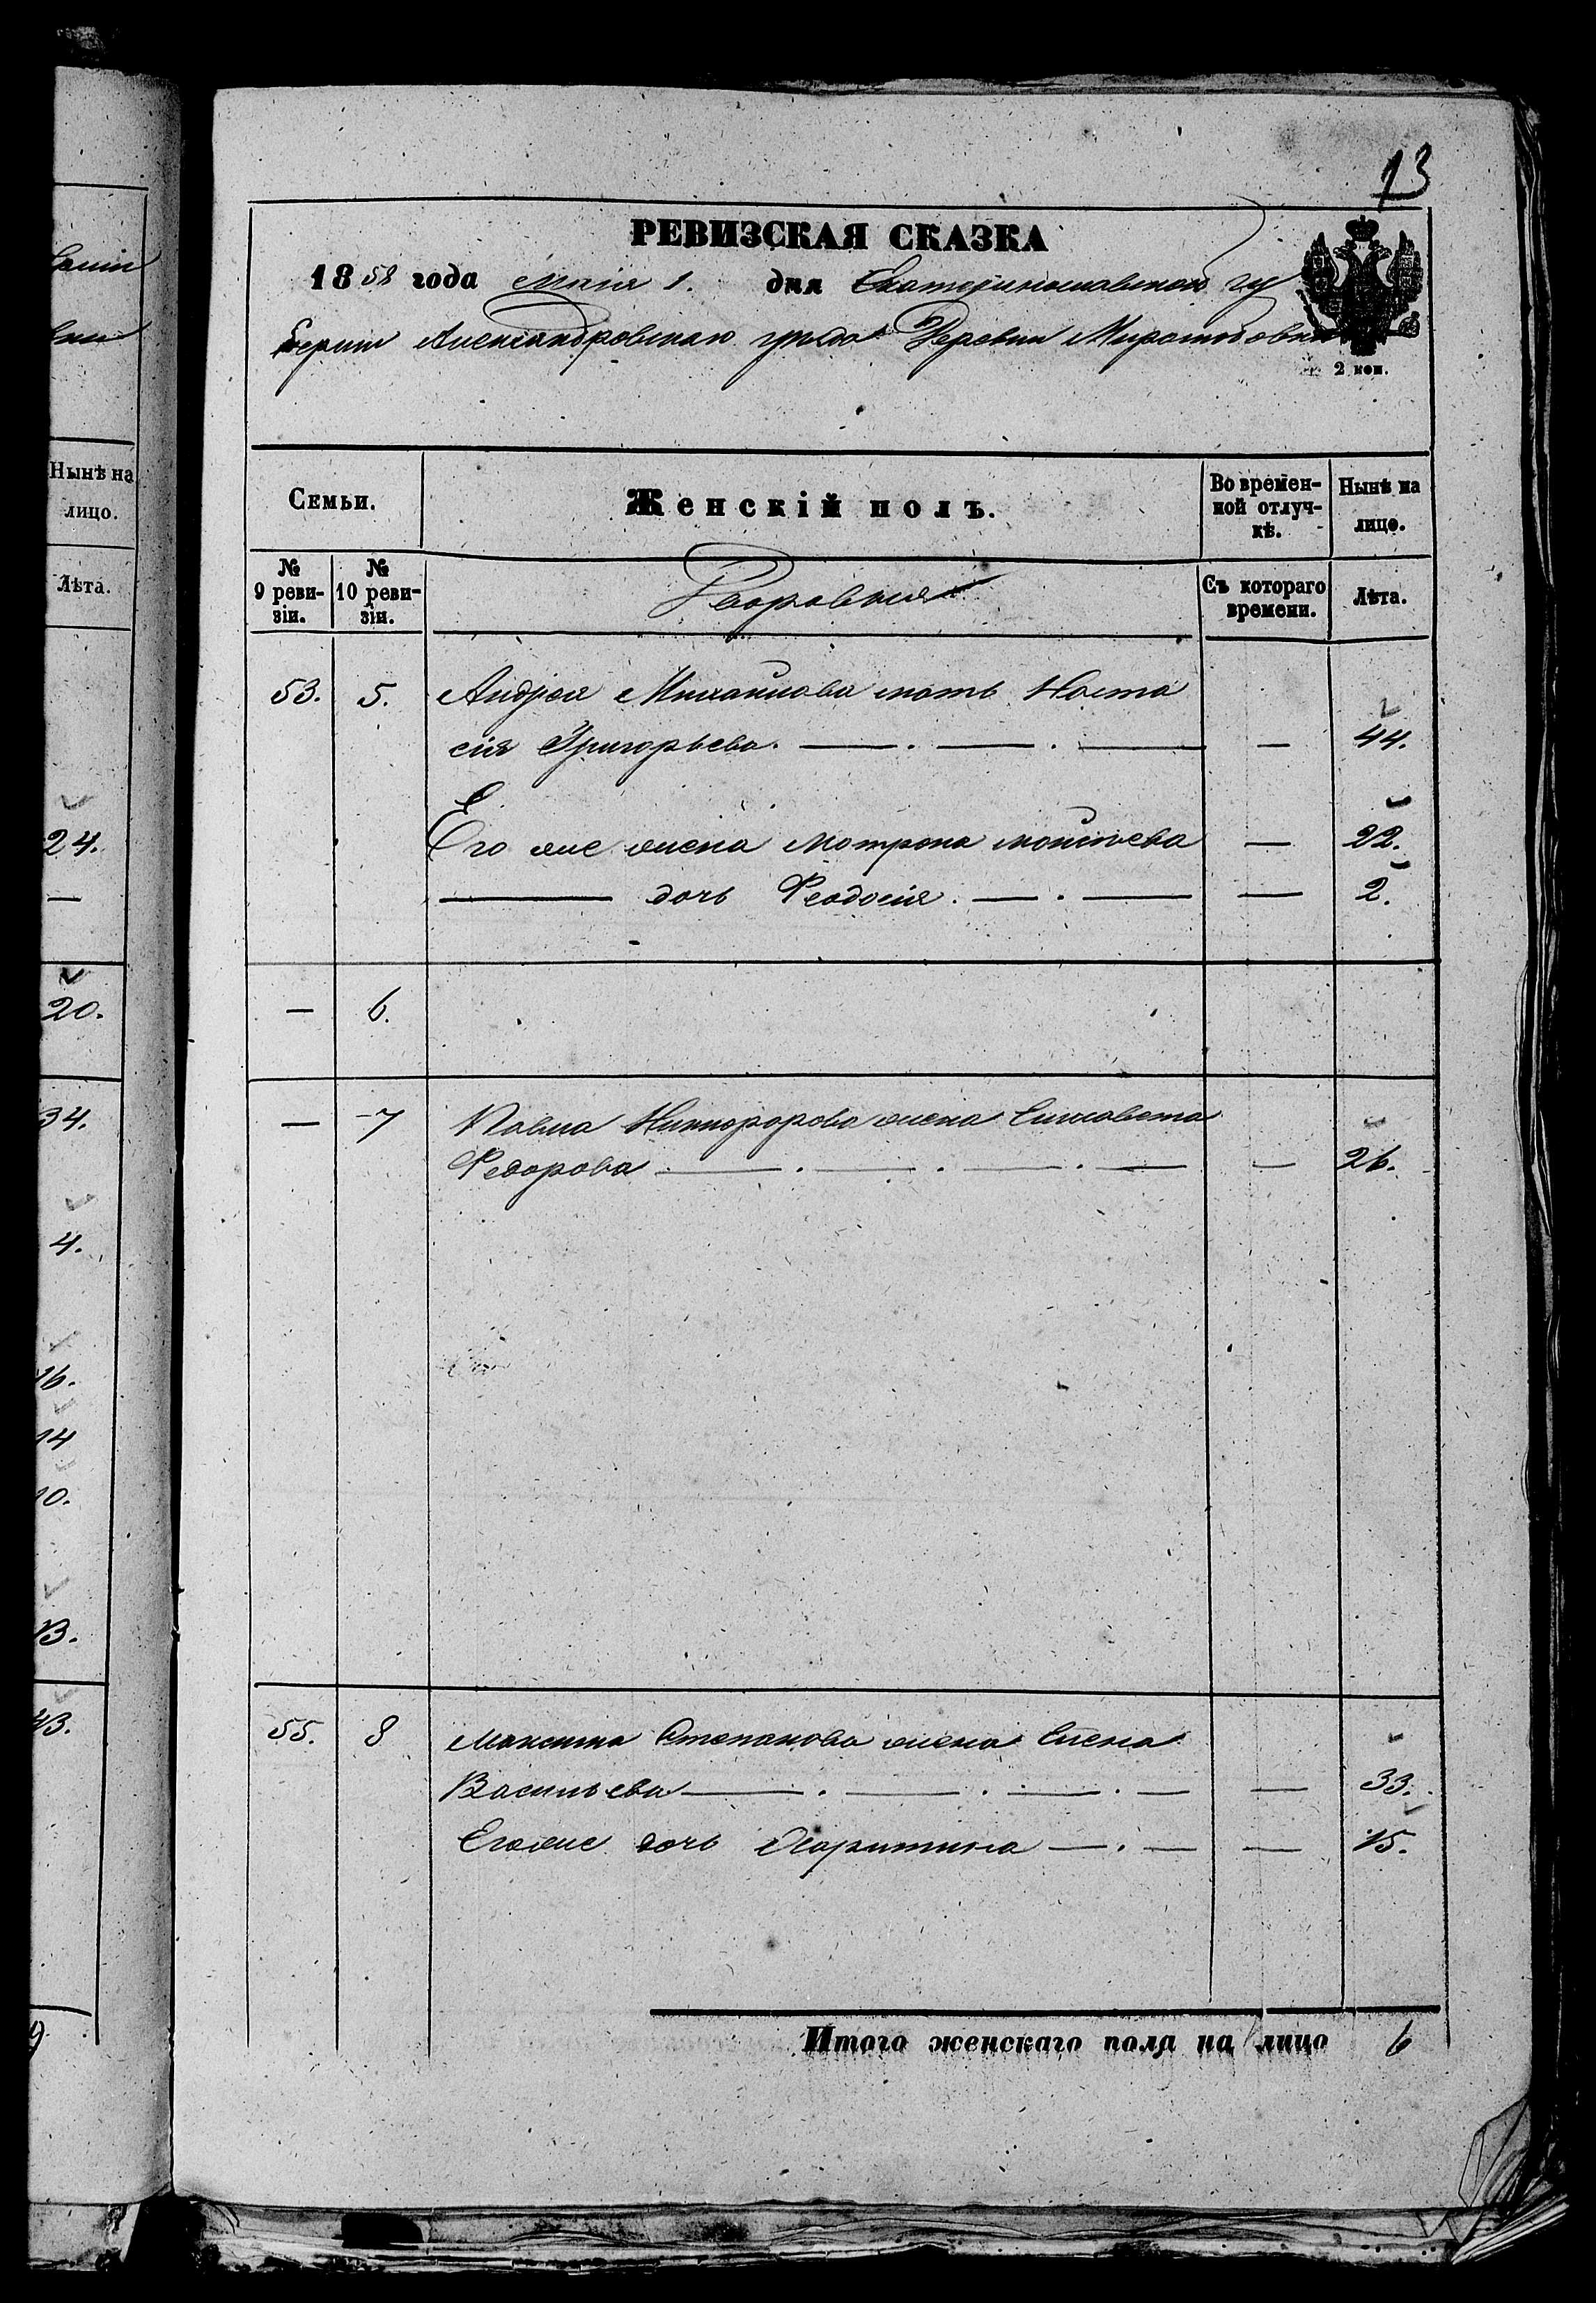 13
РЕВИЗСКАЯ СКАЗКА
1858 года Маія 1. дня Екатеринославской гу
берніи Александровскаго уѣзда Деревни Миролюбовки
2 коп.
Семьи. Женскій полъ. Во времен-ной отлуч-кѣ. Нынѣ на лице.
№ 9 реви-зіи. № 10 реви-зіи. Дворовыя Съ котораго времени. Лѣта.
53. 5. Андрея Михайлова мать Наста
сія Григорьева. — 44.
Его же жена Мотрона Моисѣева — 22.
— дочь Феодосія. — 2.
— 6.
— 7 Павла Никифорова жена Елизавета
Федорова — 26.
55. 8 Максима Степанова жена Елена
Васильева — 33.
Его же дочь Харитина — 15.
Итого женскаго пола на лицо 6
Нынѣ на
лицо.
Лѣта.
24.
—
20.
34.
4.
16.
14
10.
13.
43.
9